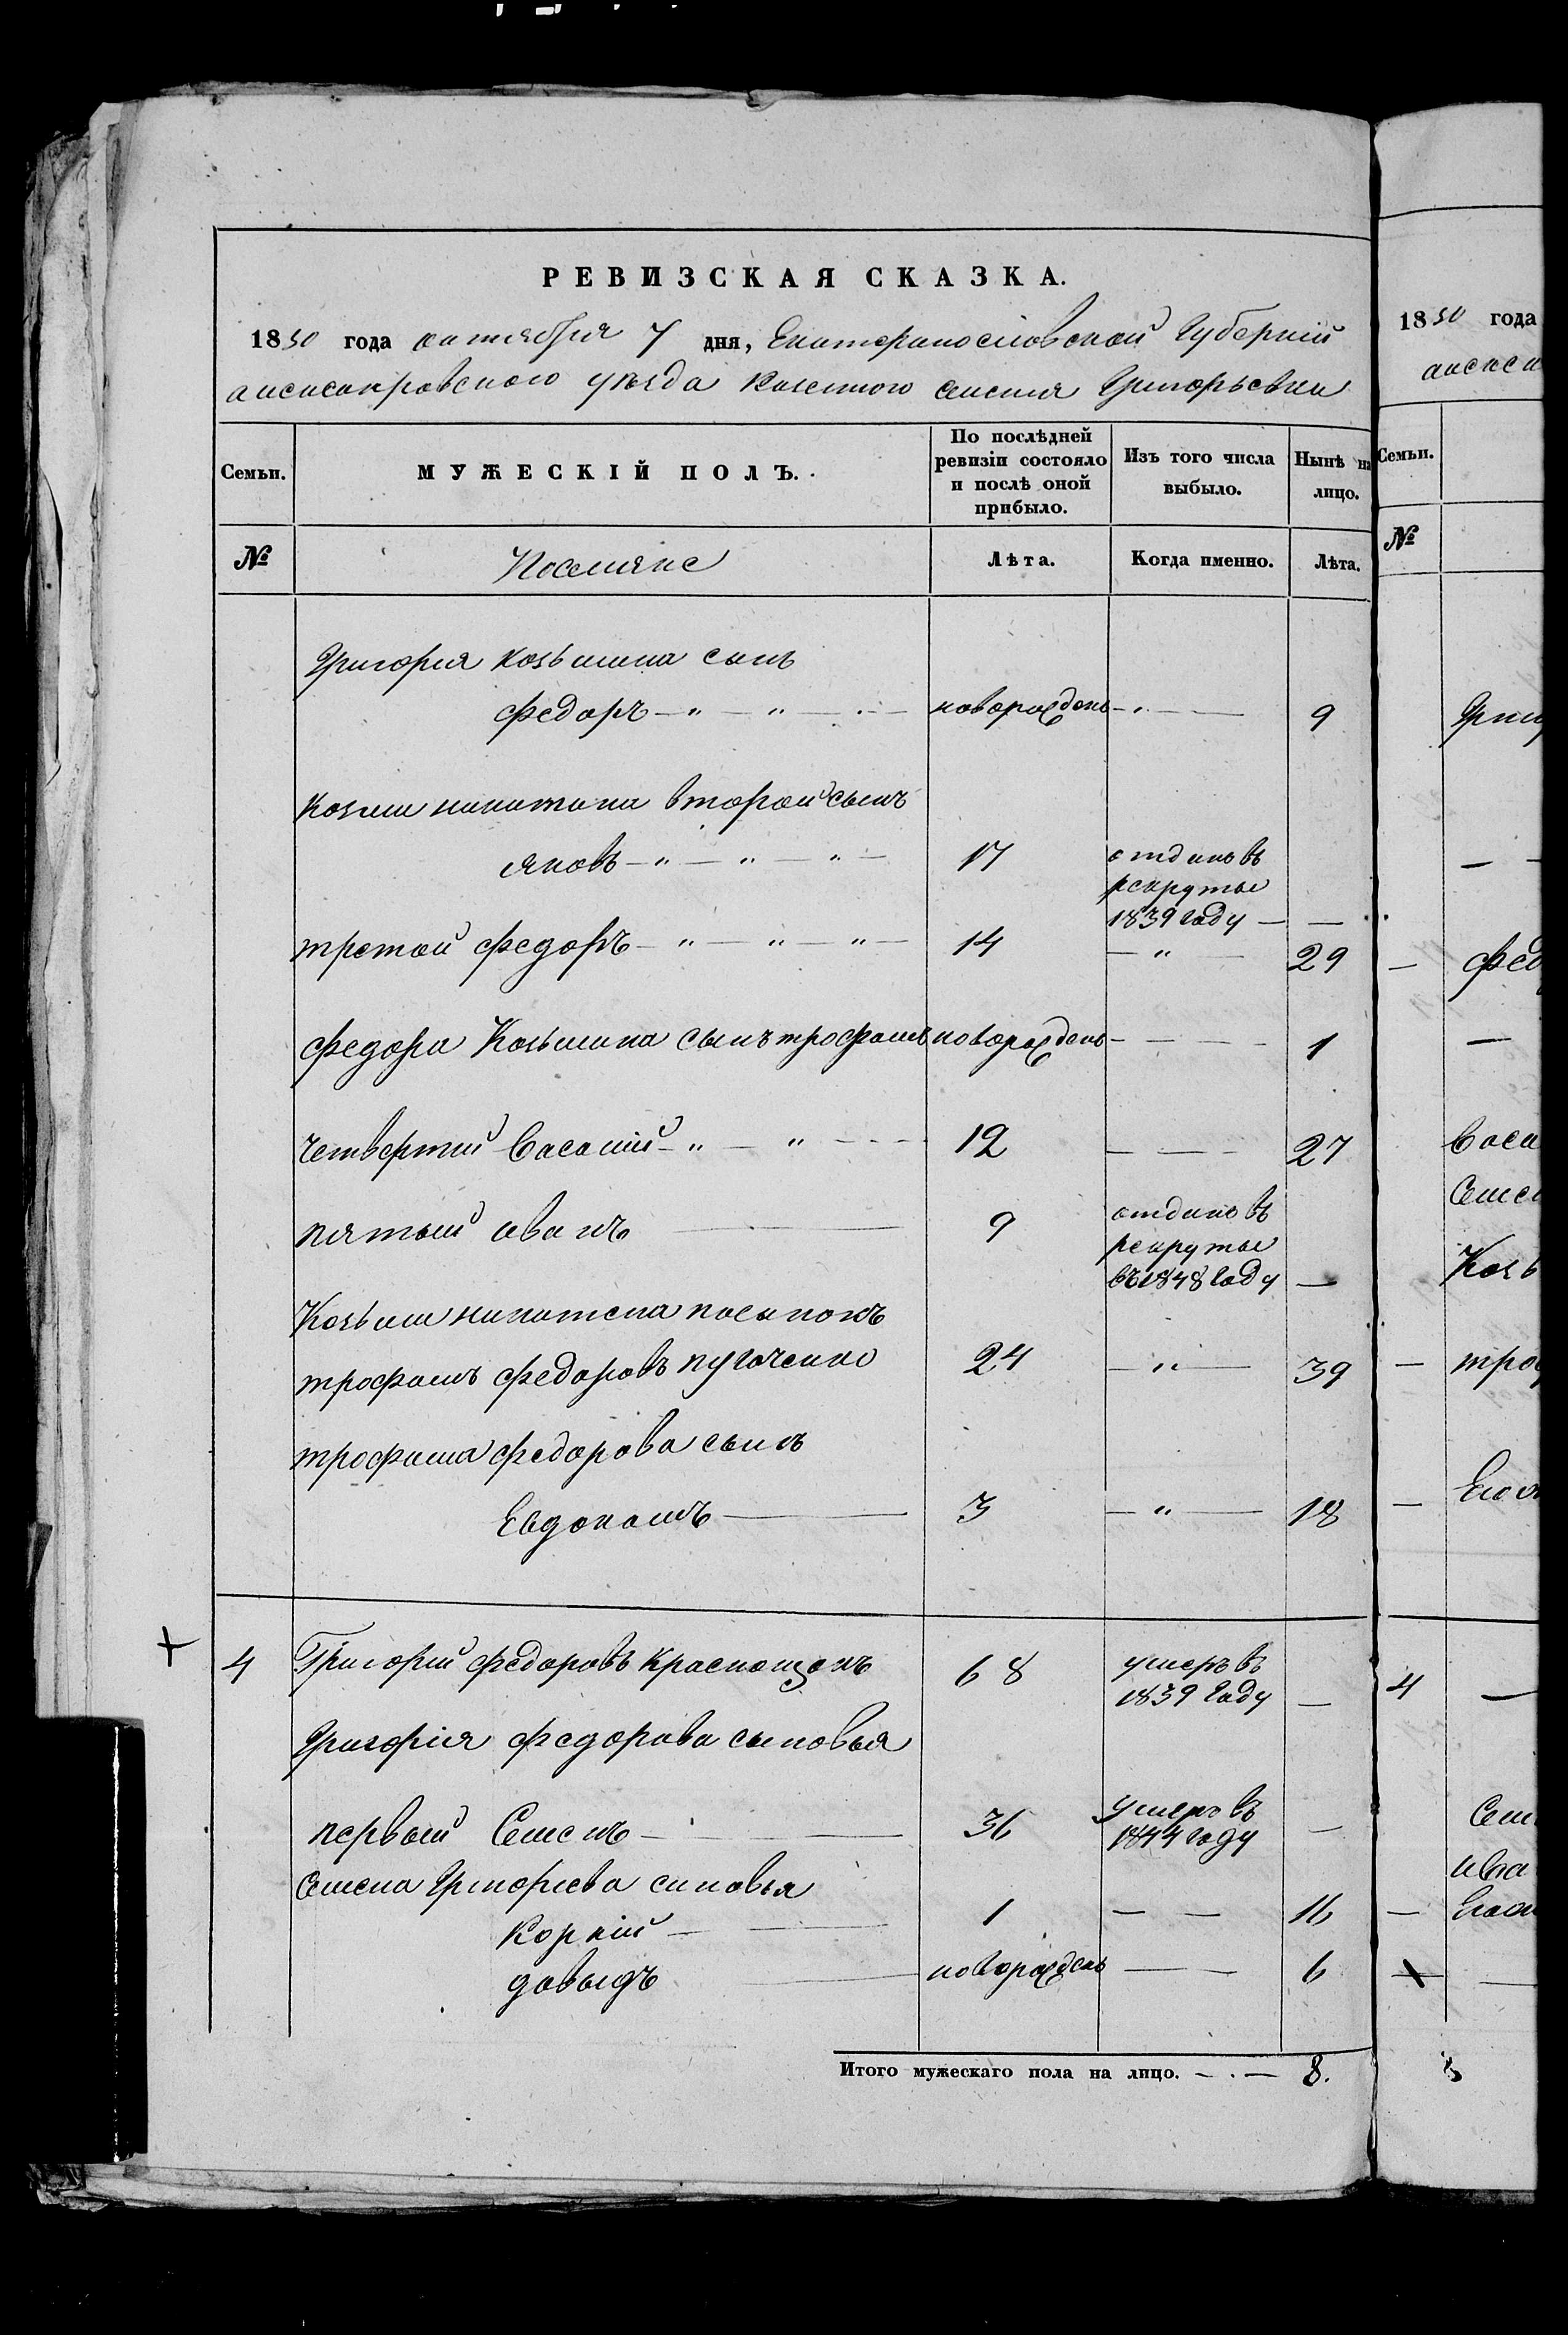 РЕВИЗСКАЯ СКАЗКА.
1850 года октября 7 дня, Екатеринославской Губернии
александровского уезда казенного селения Григорьевки
Семьи. МУЖЕСКІЙ ПОЛЪ. По послѣдней ревизіи состояло и послѣ оной прибыло. Изъ того числа выбыло. Нынѣ на лицо.
№ Поселяне Лѣта. Когда именно. Лѣта.
Григория козьмина сынъ
федоръ — " — " — новорожденъ — 9
Козми никитина второй сынъ
яковъ — " — " — " — 17 отданъ въ
рекруты
1839 году — —
третой федоръ — " — " — " — 14 — " — 29
федора Козьмина сынъ трофимъ новорожденъ — 1
четвертий Василий — " — " — 12 — 27
пятый иванъ — 9 отданъ въ
рекруты
въ 1848 году —
Козьми никитена пасынокъ
трофимъ федоровъ пугаченко 24 — " — 39
трофима федорова сынъ
Евдокимъ — 3 — " — 18
4 Григорий федоровъ Краснощокъ 68 умеръ въ
1839 году —
Григорія федорова сыновья
первый Семенъ — 36 умеръ въ
1844 году —
Семена Григориева синовья
Корнiй — 1 — — 16
давыдъ — новорожденъ — 6
Итого мужескаго пола на лицо. — 8.
1850 года
Семьи.
№
—
фед
—
—
4 —